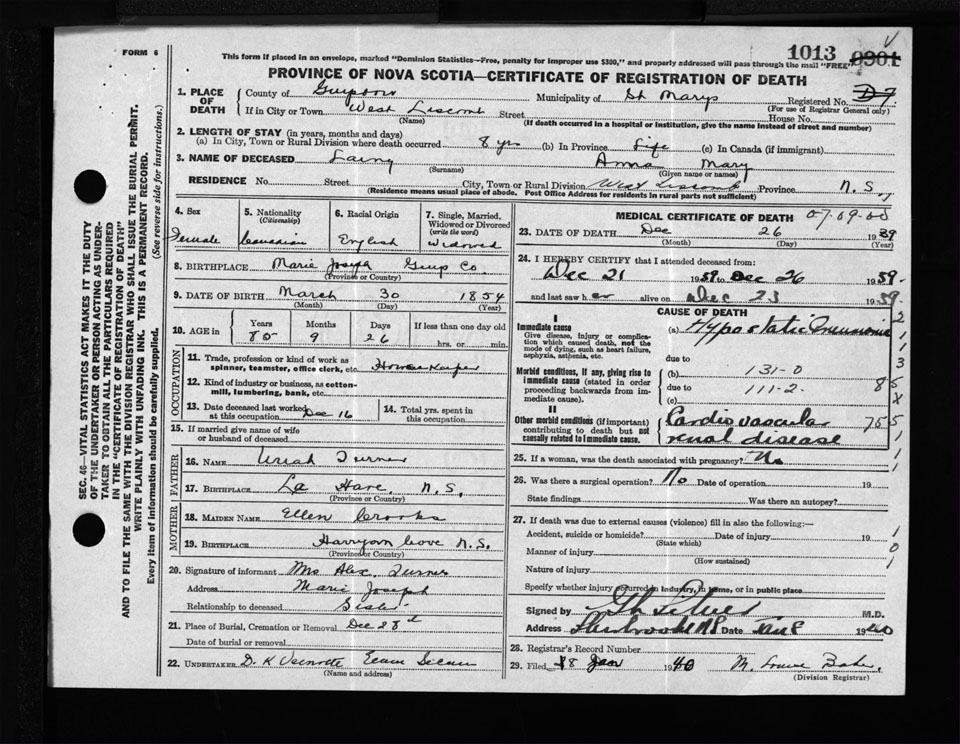 FORM 6
This form if placed in an envelope, marked "Dominion Statistics—Free, penalty for improper use $300," and properly addressed will pass through the mail "FREE"
1013 0901
PROVINCE OF NOVA SCOTIA—CERTIFICATE OF REGISTRATION OF DEATH
1. PLACE OF DEATH
County of Guysboro Municipality of St Marys Registered No.
(For use of Registrar General only)
If in City or Town West Liscomb Street House No.
(Name) (If death occurred in a hospital or institution, give the name instead of street and number)
2. LENGTH OF STAY (in years, months and days)
(a) In City, Town or Rural Division where death occurred 8 yrs (b) In Province Life (c) In Canada (if immigrant)
3. NAME OF DECEASED Laing Anna Mary
(Surname) (Given name or names)
RESIDENCE No. Street City, Town or Rural Division West Liscomb Province N.S.
(Residence means usual place of abode. Post Office Address for residents in rural parts not sufficient)
4. Sex
Female
5. Nationality
(Citizenship)
Canadian
6. Racial Origin
English
7. Single, Married, Widowed or Divorced
(write the word)
Widowed
8. BIRTHPLACE Marie Joseph Guys Co.
(Province or Country)
9. DATE OF BIRTH March 30 1854
(Month) (Day) (Year)
10. AGE in
Years Months Days If less than one day old
85 9 26 hrs. or min.
OCCUPATION
11. Trade, profession or kind of work as spinner, teamster, office clerk, etc. Housekeeper
12. Kind of industry or business, as cotton-mill, lumbering, bank, etc.
13. Date deceased last worked at this occupation Dec 16
14. Total yrs. spent in this occupation
15. If married give name of wife or husband of deceased
FATHER
16. NAME Uriah Turner
17. BIRTHPLACE La Have N.S.
(Province or Country)
MOTHER
18. MAIDEN NAME Ellen Crooks
19. BIRTHPLACE Cove N.S.
(Province or Country)
20. Signature of informant Mrs Alex. Turner
Address Marie Joseph
Relationship to deceased Sister
21. Place of Burial, Cremation or Removal Dec 28
Date of burial or removal
22. UNDERTAKER D. K
(Name and address)
MEDICAL CERTIFICATE OF DEATH
23. DATE OF DEATH Dec 26 1939
(Month) (Day) (Year)
24. I HEREBY CERTIFY that I attended deceased from:
Dec 21 1939 to Dec 26 1939.
and last saw her alive on Dec 23 1939
CAUSE OF DEATH
I
Immediate cause
Give disease, injury or complication which caused death, not the mode of dying, such as heart failure, asphyxia, asthenia, etc.
(a) Hypostatic Pneumonia
due to
Morbid conditions, if any, giving rise to immediate cause (stated in order proceeding backwards from immediate cause).
(b) 131-0
due to 111-2.
(c)
II
Other morbid conditions (if important) contributing to death but not causally related to immediate cause.
Cardio vascular
renal disease
25. If a woman, was the death associated with pregnancy? No
26. Was there a surgical operation? No Date of operation 19
State findings Was there an autopsy?
27. If death was due to external causes (violence) fill in also the following:—
Accident, suicide or homicide? Date of injury 19
(State which)
Manner of injury
(How sustained)
Nature of injury
Specify whether injury occurred in industry, in home, or in public place
Signed by M.D.
Address Sherbrooke NS Date Jan 8 1940
28. Registrar's Record Number
29. Filed 8 Jan 1940 M. Baker,
(Division Registrar)
SEC. 46—VITAL STATISTICS ACT MAKES IT THE DUTY OF THE UNDERTAKER OR PERSON ACTING AS UNDERTAKER TO OBTAIN ALL THE PARTICULARS REQUIRED IN THE "CERTIFICATE OF REGISTRATION OF DEATH" AND TO FILE THE SAME WITH THE DIVISION REGISTRAR WHO SHALL ISSUE THE BURIAL PERMIT.
WRITE PLAINLY WITH UNFADING INK. THIS IS A PERMANENT RECORD.
Every item of information should be carefully supplied. (See reverse side for instructions.)